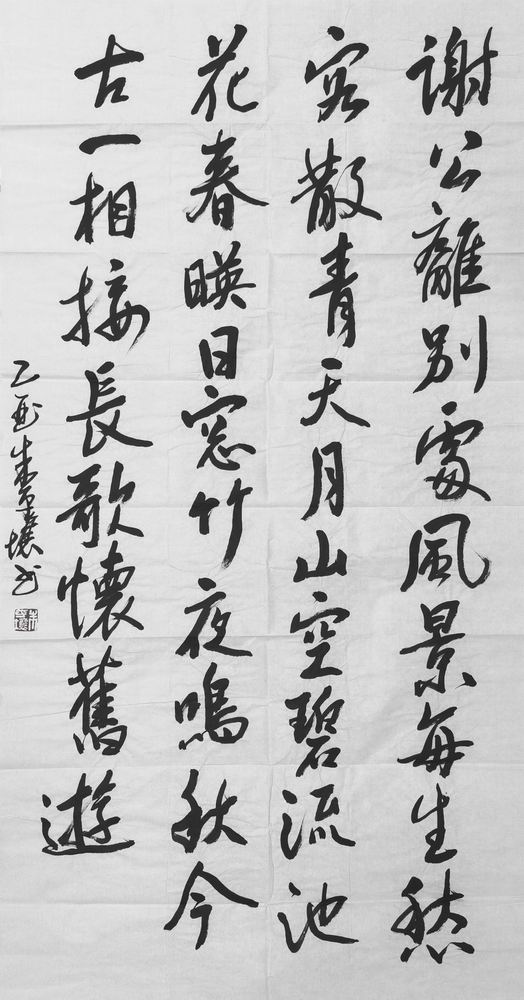 謝公離別處風景每生愁
客散青天月山空碧流池
花春暎日窓竹夜鳴秋今
古一相接長歌懷舊遊
乙酉